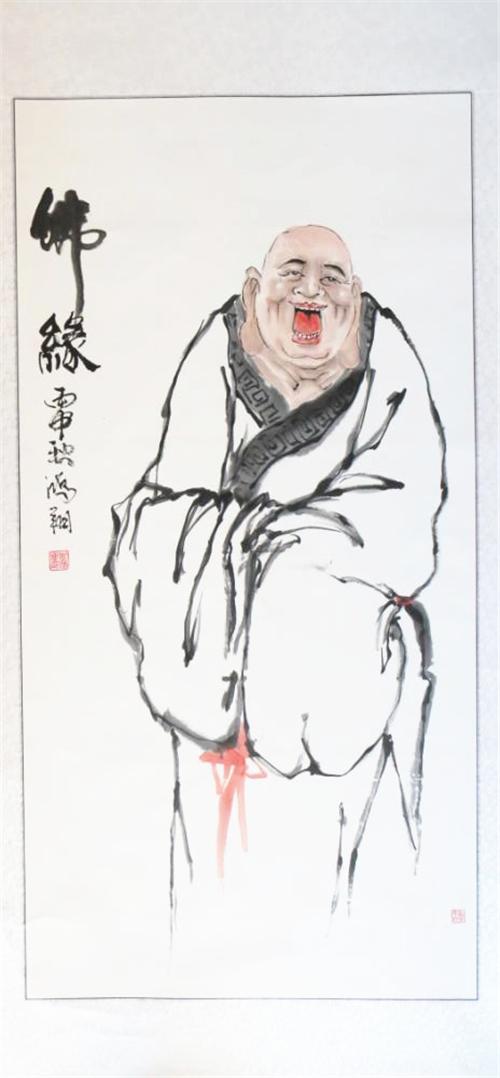 佛緣
丙申秋鴻翔